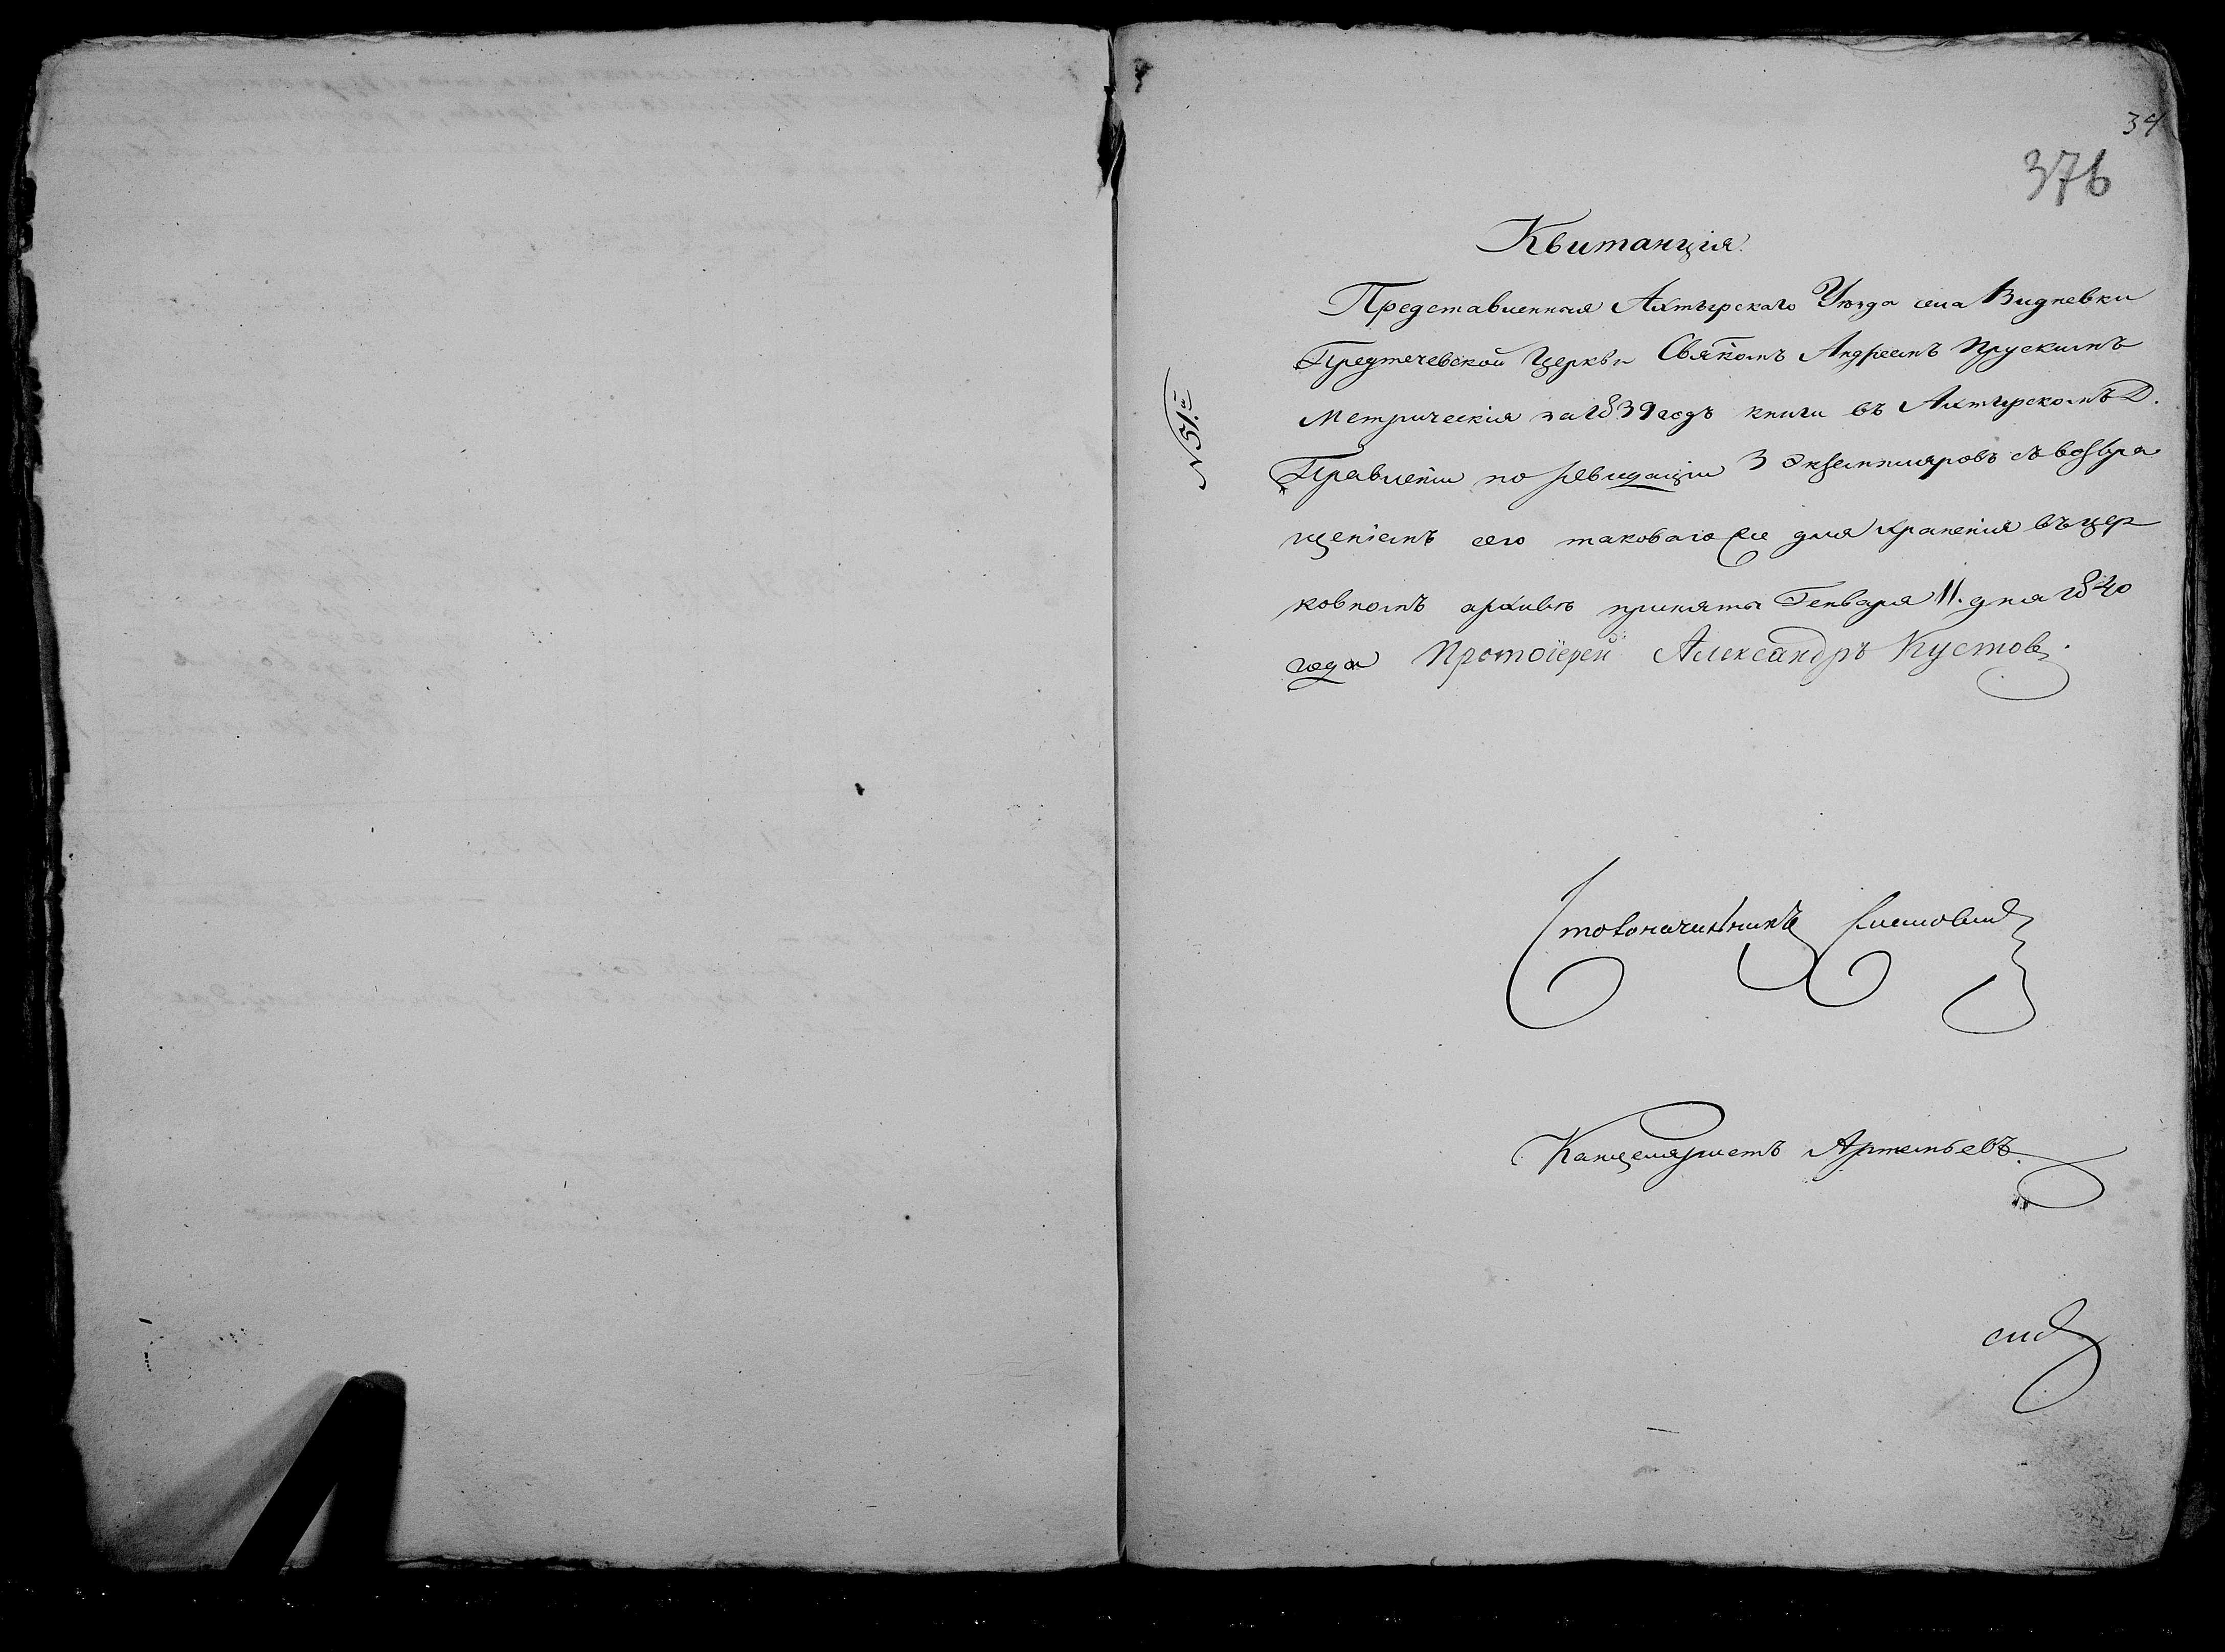 34
376
Квитанція.
Представленныя Ахтырскаго Уѣзда села Видневки
Предтечевской Церкви Свящ͠комъ Андреемъ Прускимъ
Метрическія за 1839 годъ книги въ Ахтырскомъ Д.
Правленіи по ревидаціи 3 экземпляровъ съ возвра
щеніемъ сего таковаго для храненія въ цер
ковномъ архивѣ приняты Генваря 11. дня 1840
года Протоіерей Александръ Кустовъ.
N 51.й
Столоначальникъ
Канцеляристъ Артемьевъ.